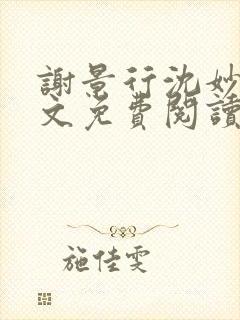 謝景行沈妙
文免費閱讀
施佳雯